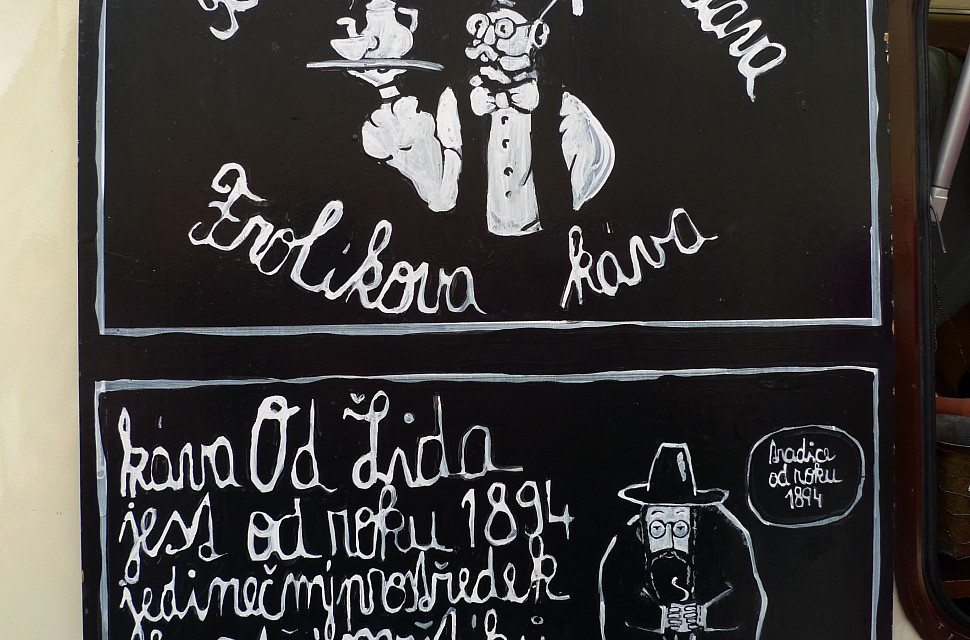 Frolíkova káva
káva Od Žida
jest od roku 1894
jedinečný prostředek
tradice
od roku
1894